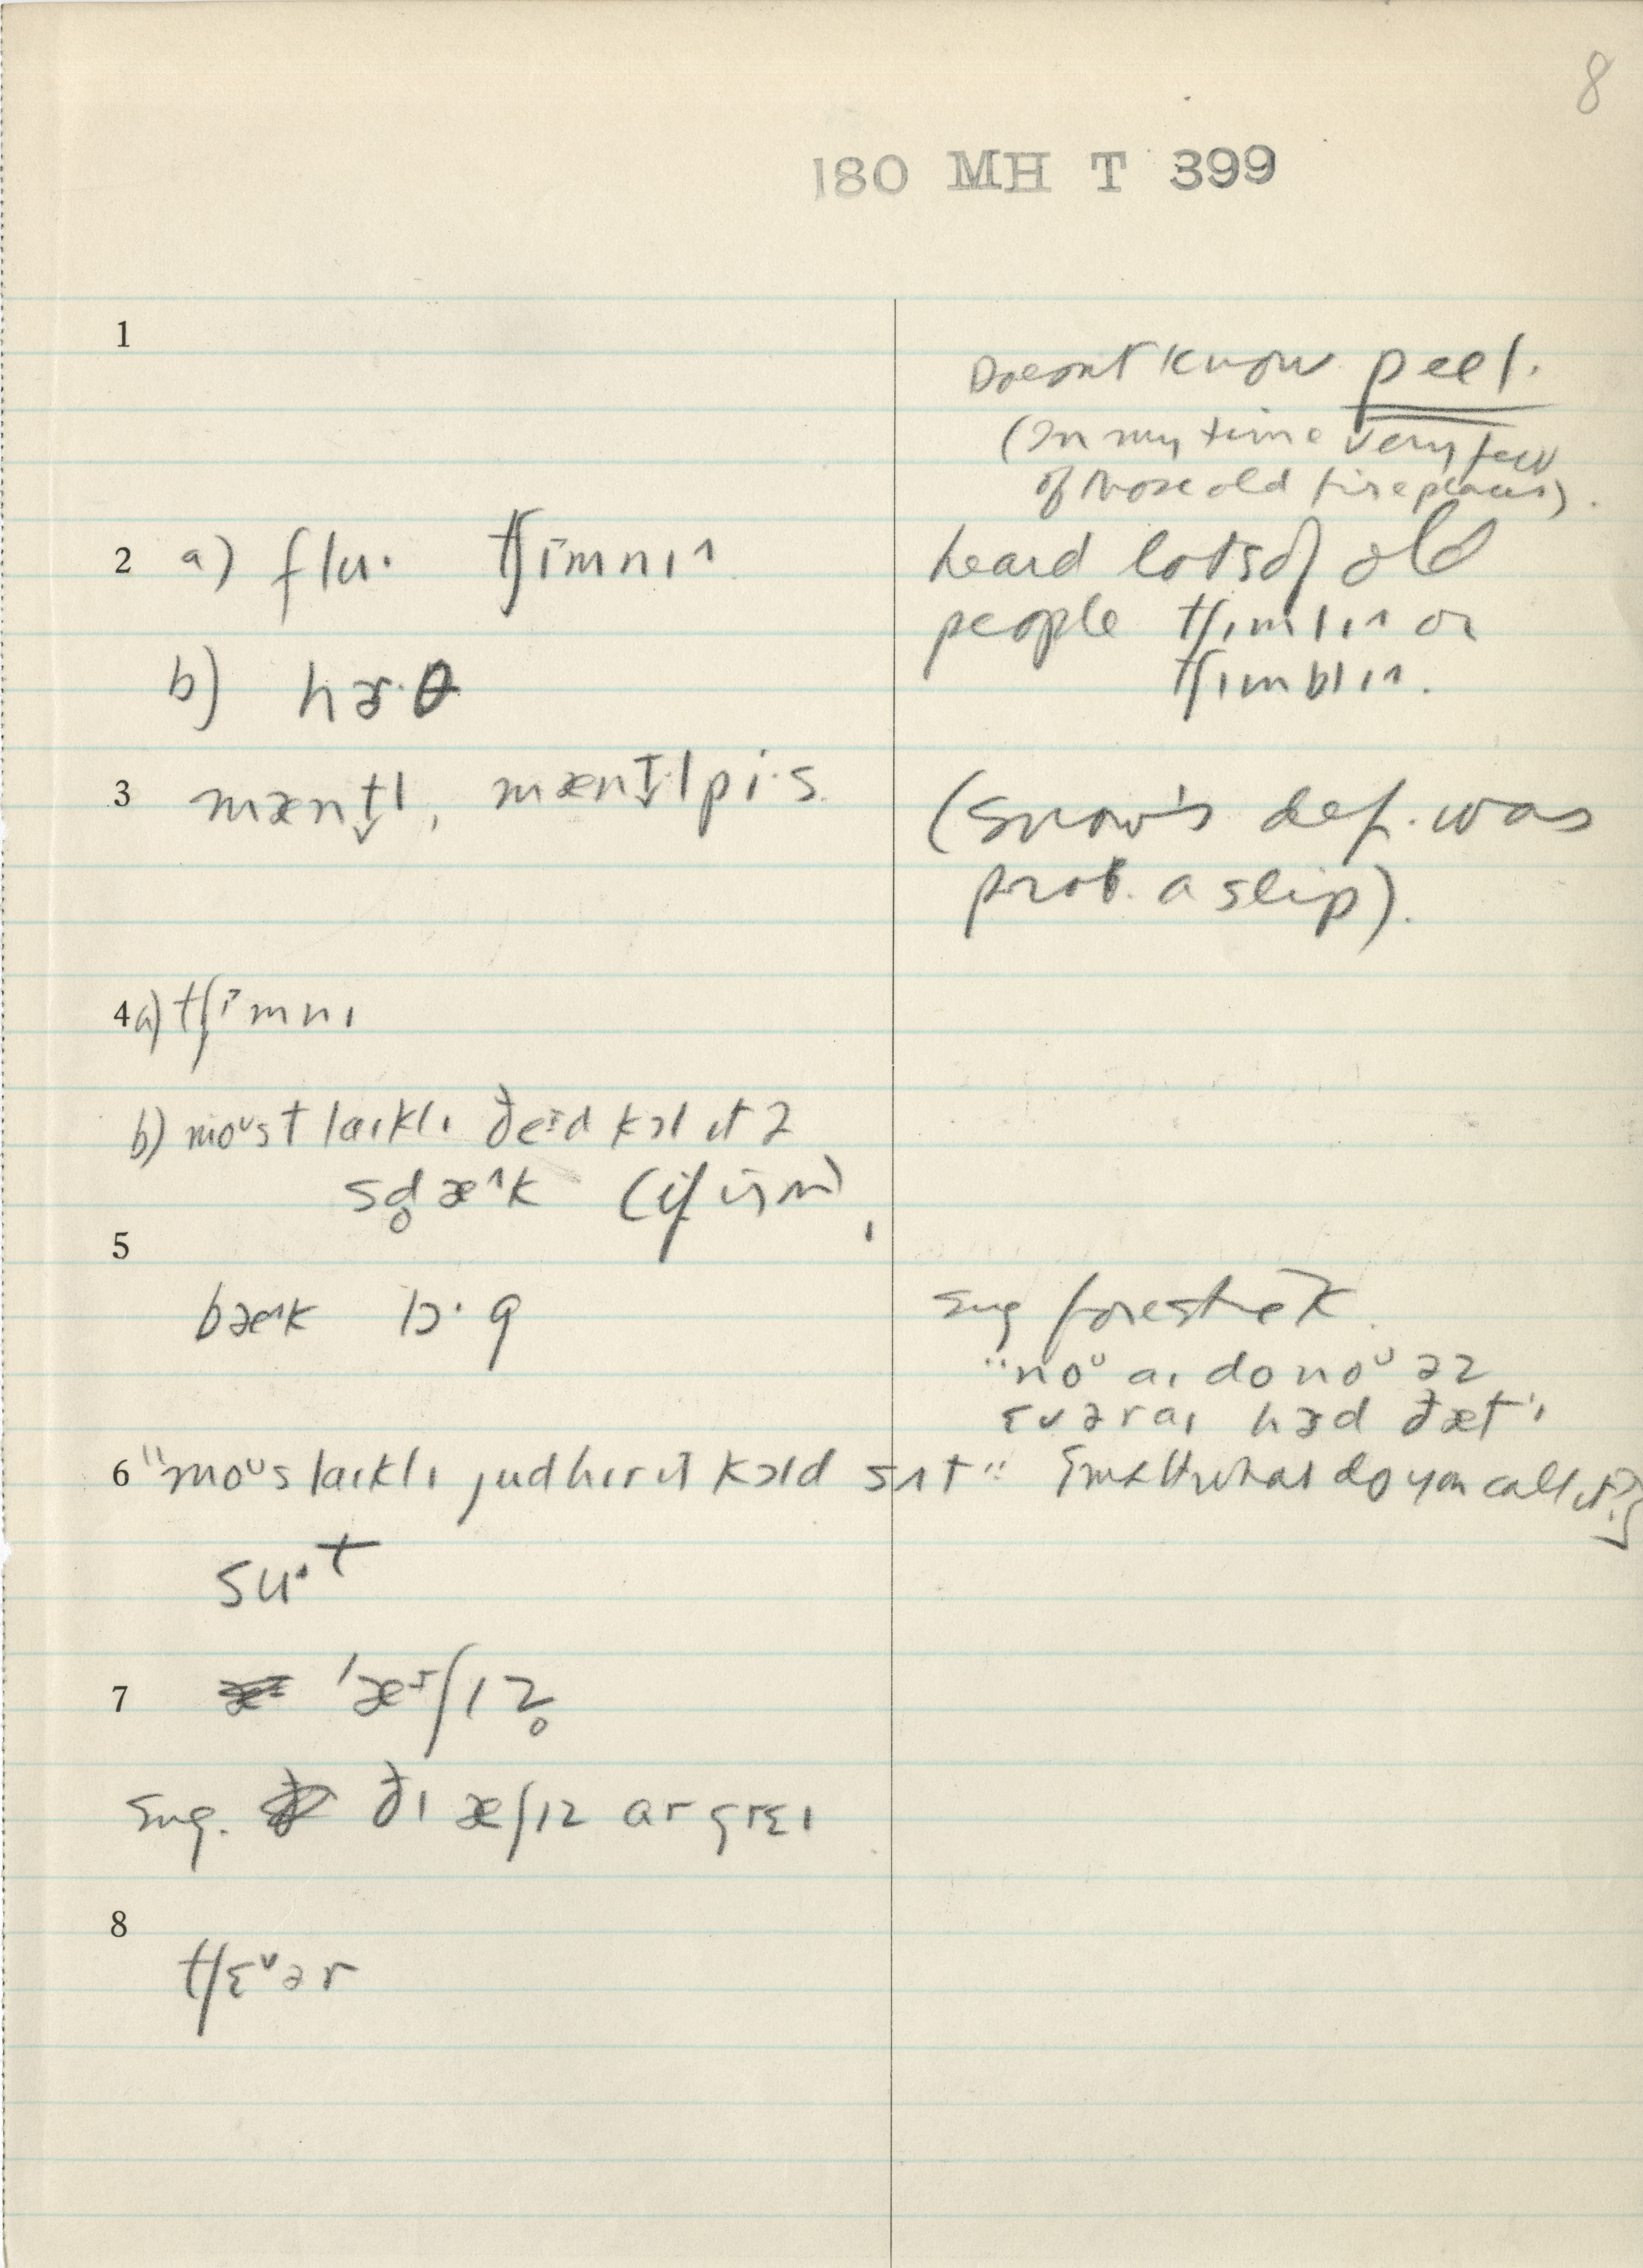 8
180 MH T 399
1
Doesnt know peel.
(In my time very few
of those old fireplaces).
2 a) flu· tʃɪmnɪ^
heard lots of old
people tʃɪmlɪ^ or
tʃɪmblɪ^.
b) hɚ·θ
3 mænt̬l, mænt̬lpi·s.
(Snow's def. was
prob. a slip).
4 a) tʃɪmnɪ
b) moᵘst laɪklɪ ðeɪd kɔl ɪt ə
sd̥æ^k
5
bæ^k lɔ·g
sug forestick.
"noᵘ aɪ do noᵘ əz
ɛvər aɪ hɜd ðæt"
6 "moᵘs laɪklɪ judhɪr ɪt kɔld sʌt" what do you call it?]
su·t
7 'æʃɪz̥
sug. ðɪ æʃɪz ar grɛɪ
8
tʃɛˇər